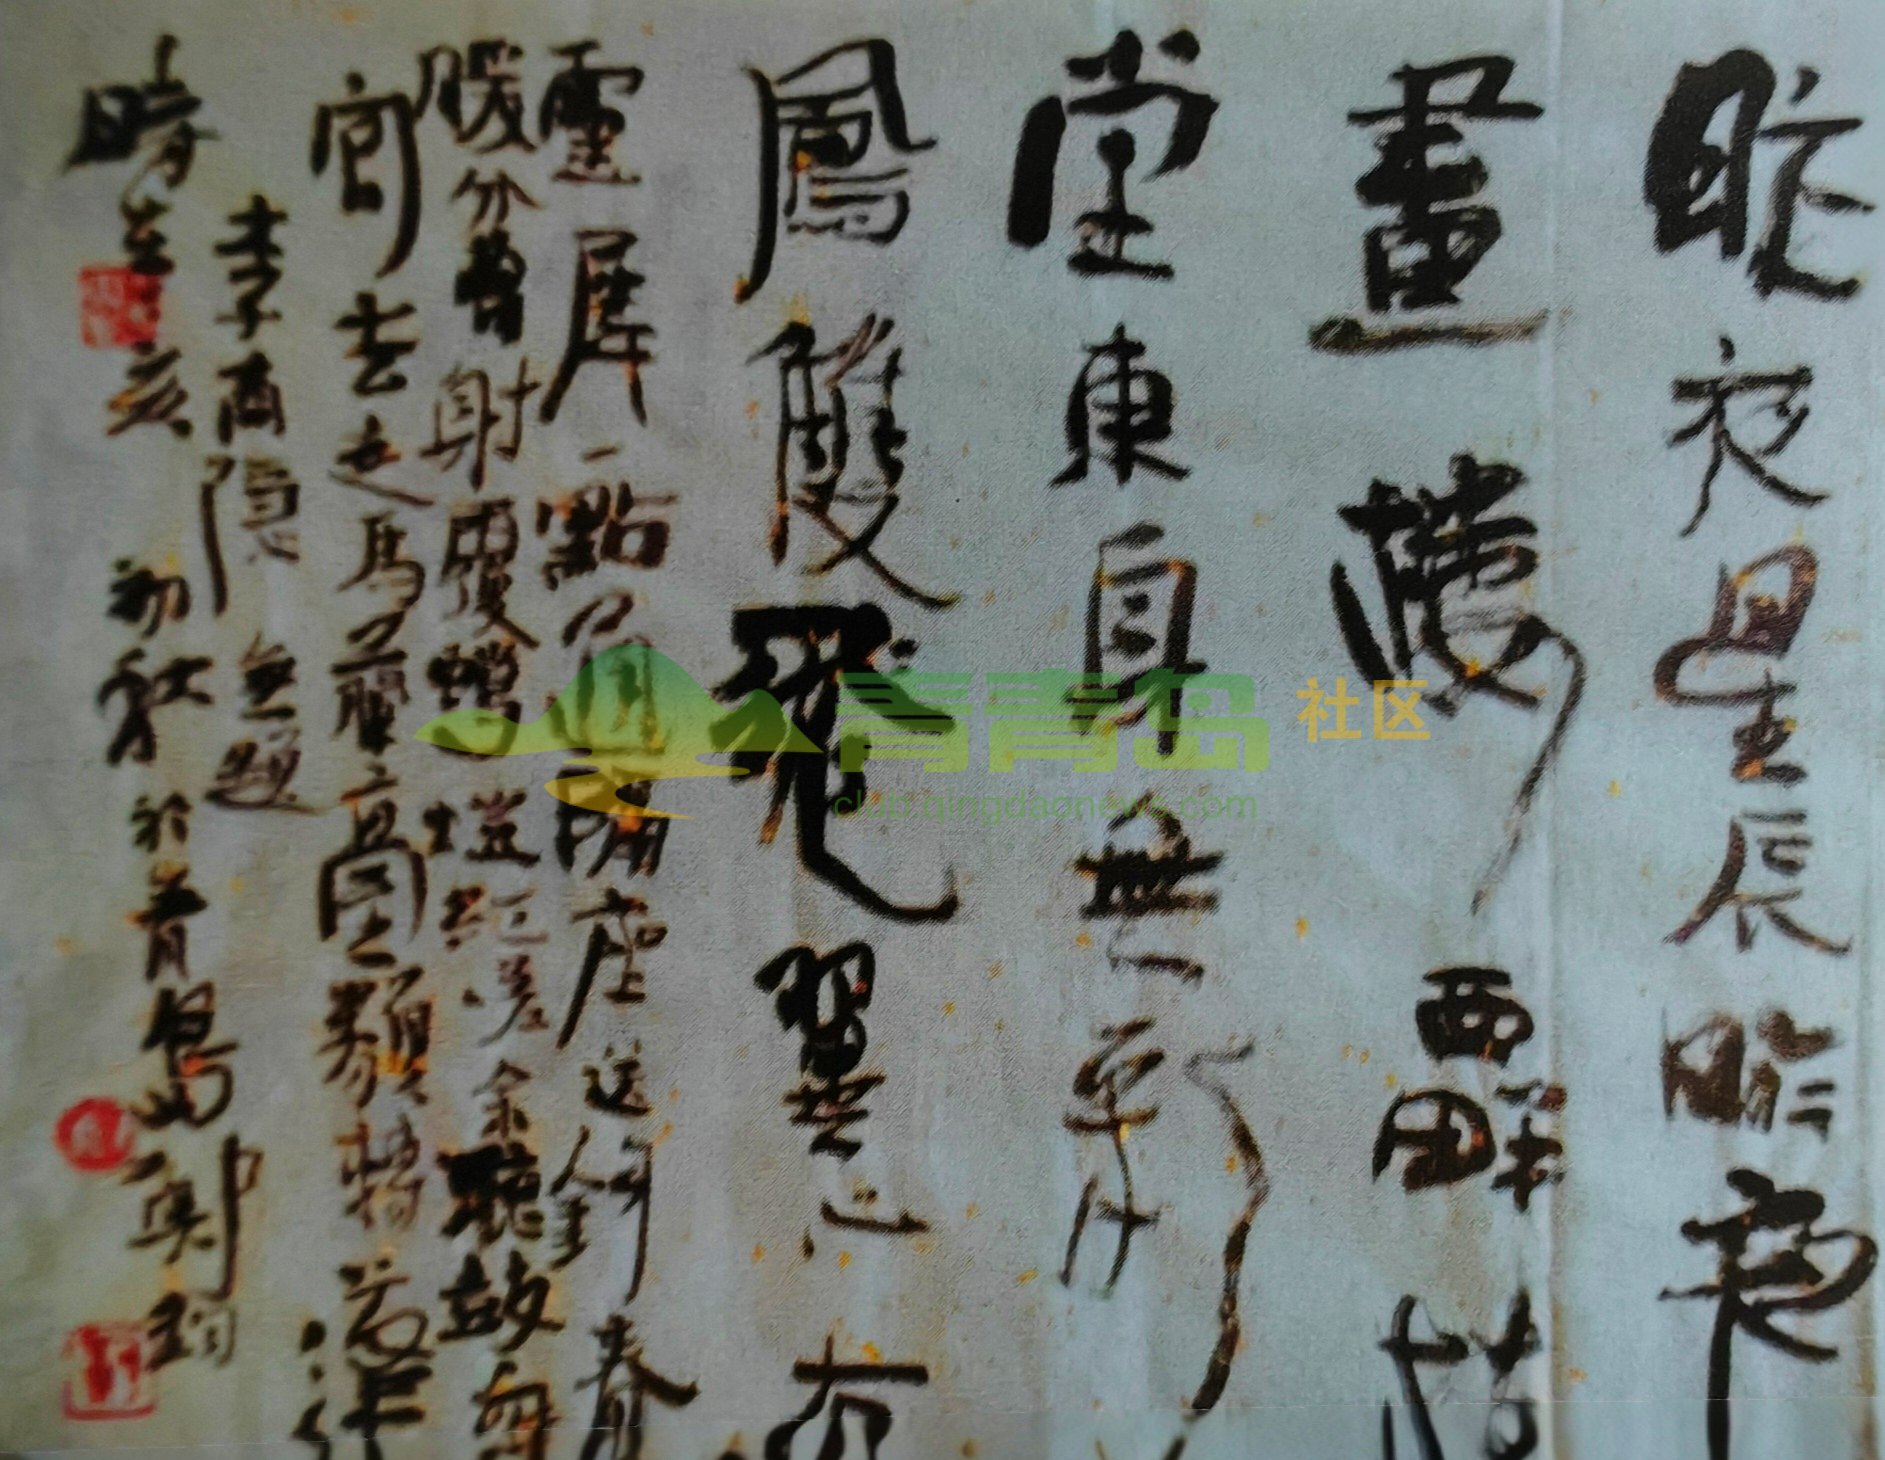 昨夜星辰昨夜
畫樓西畔桂
堂東身無彩
鳳雙飛翼心有
靈犀一點通隔座送鉤春
暖分曹射覆蠟燈紅嗟余聽鼓
官去走馬蘭臺類轉蓬
李商隐無題
時在亥初秋於青島鄭
青青岛社区
club.qingdaonews.com